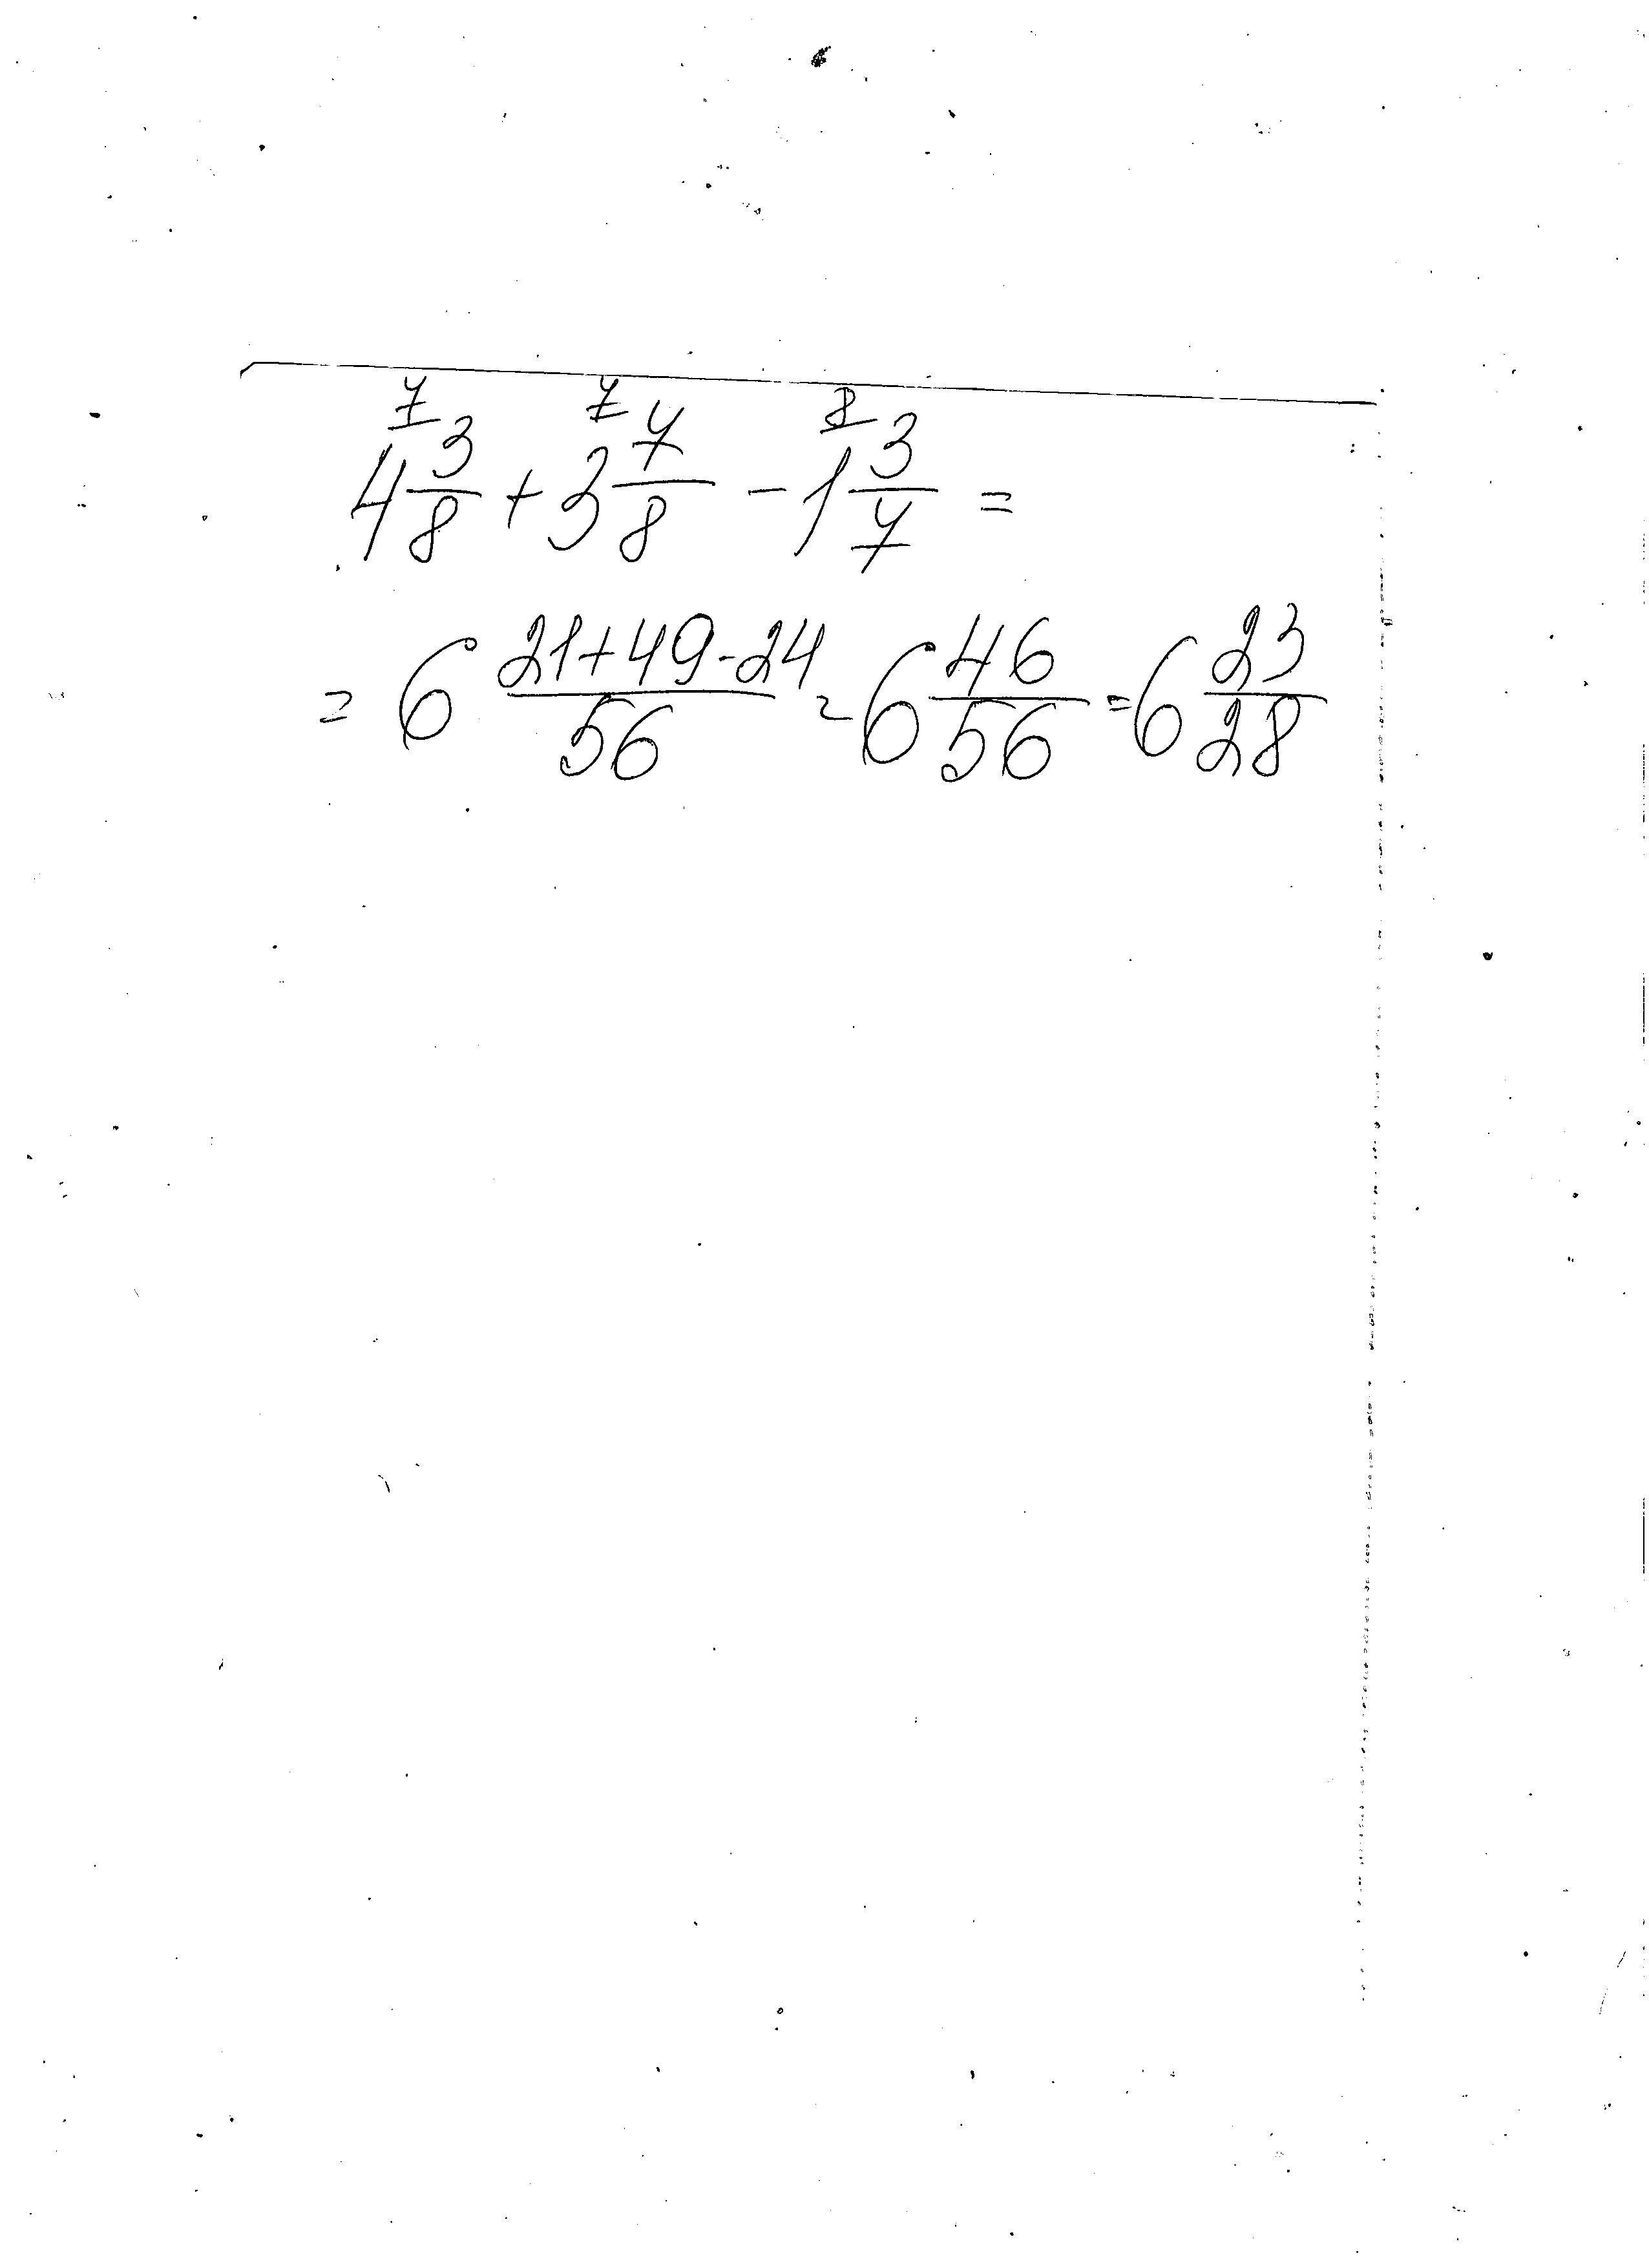 7 7 8
4 3/8 + 3 7/8 - 1 3/7 =
= 6 21+49-24/56 = 6 46/56 = 6 23/28